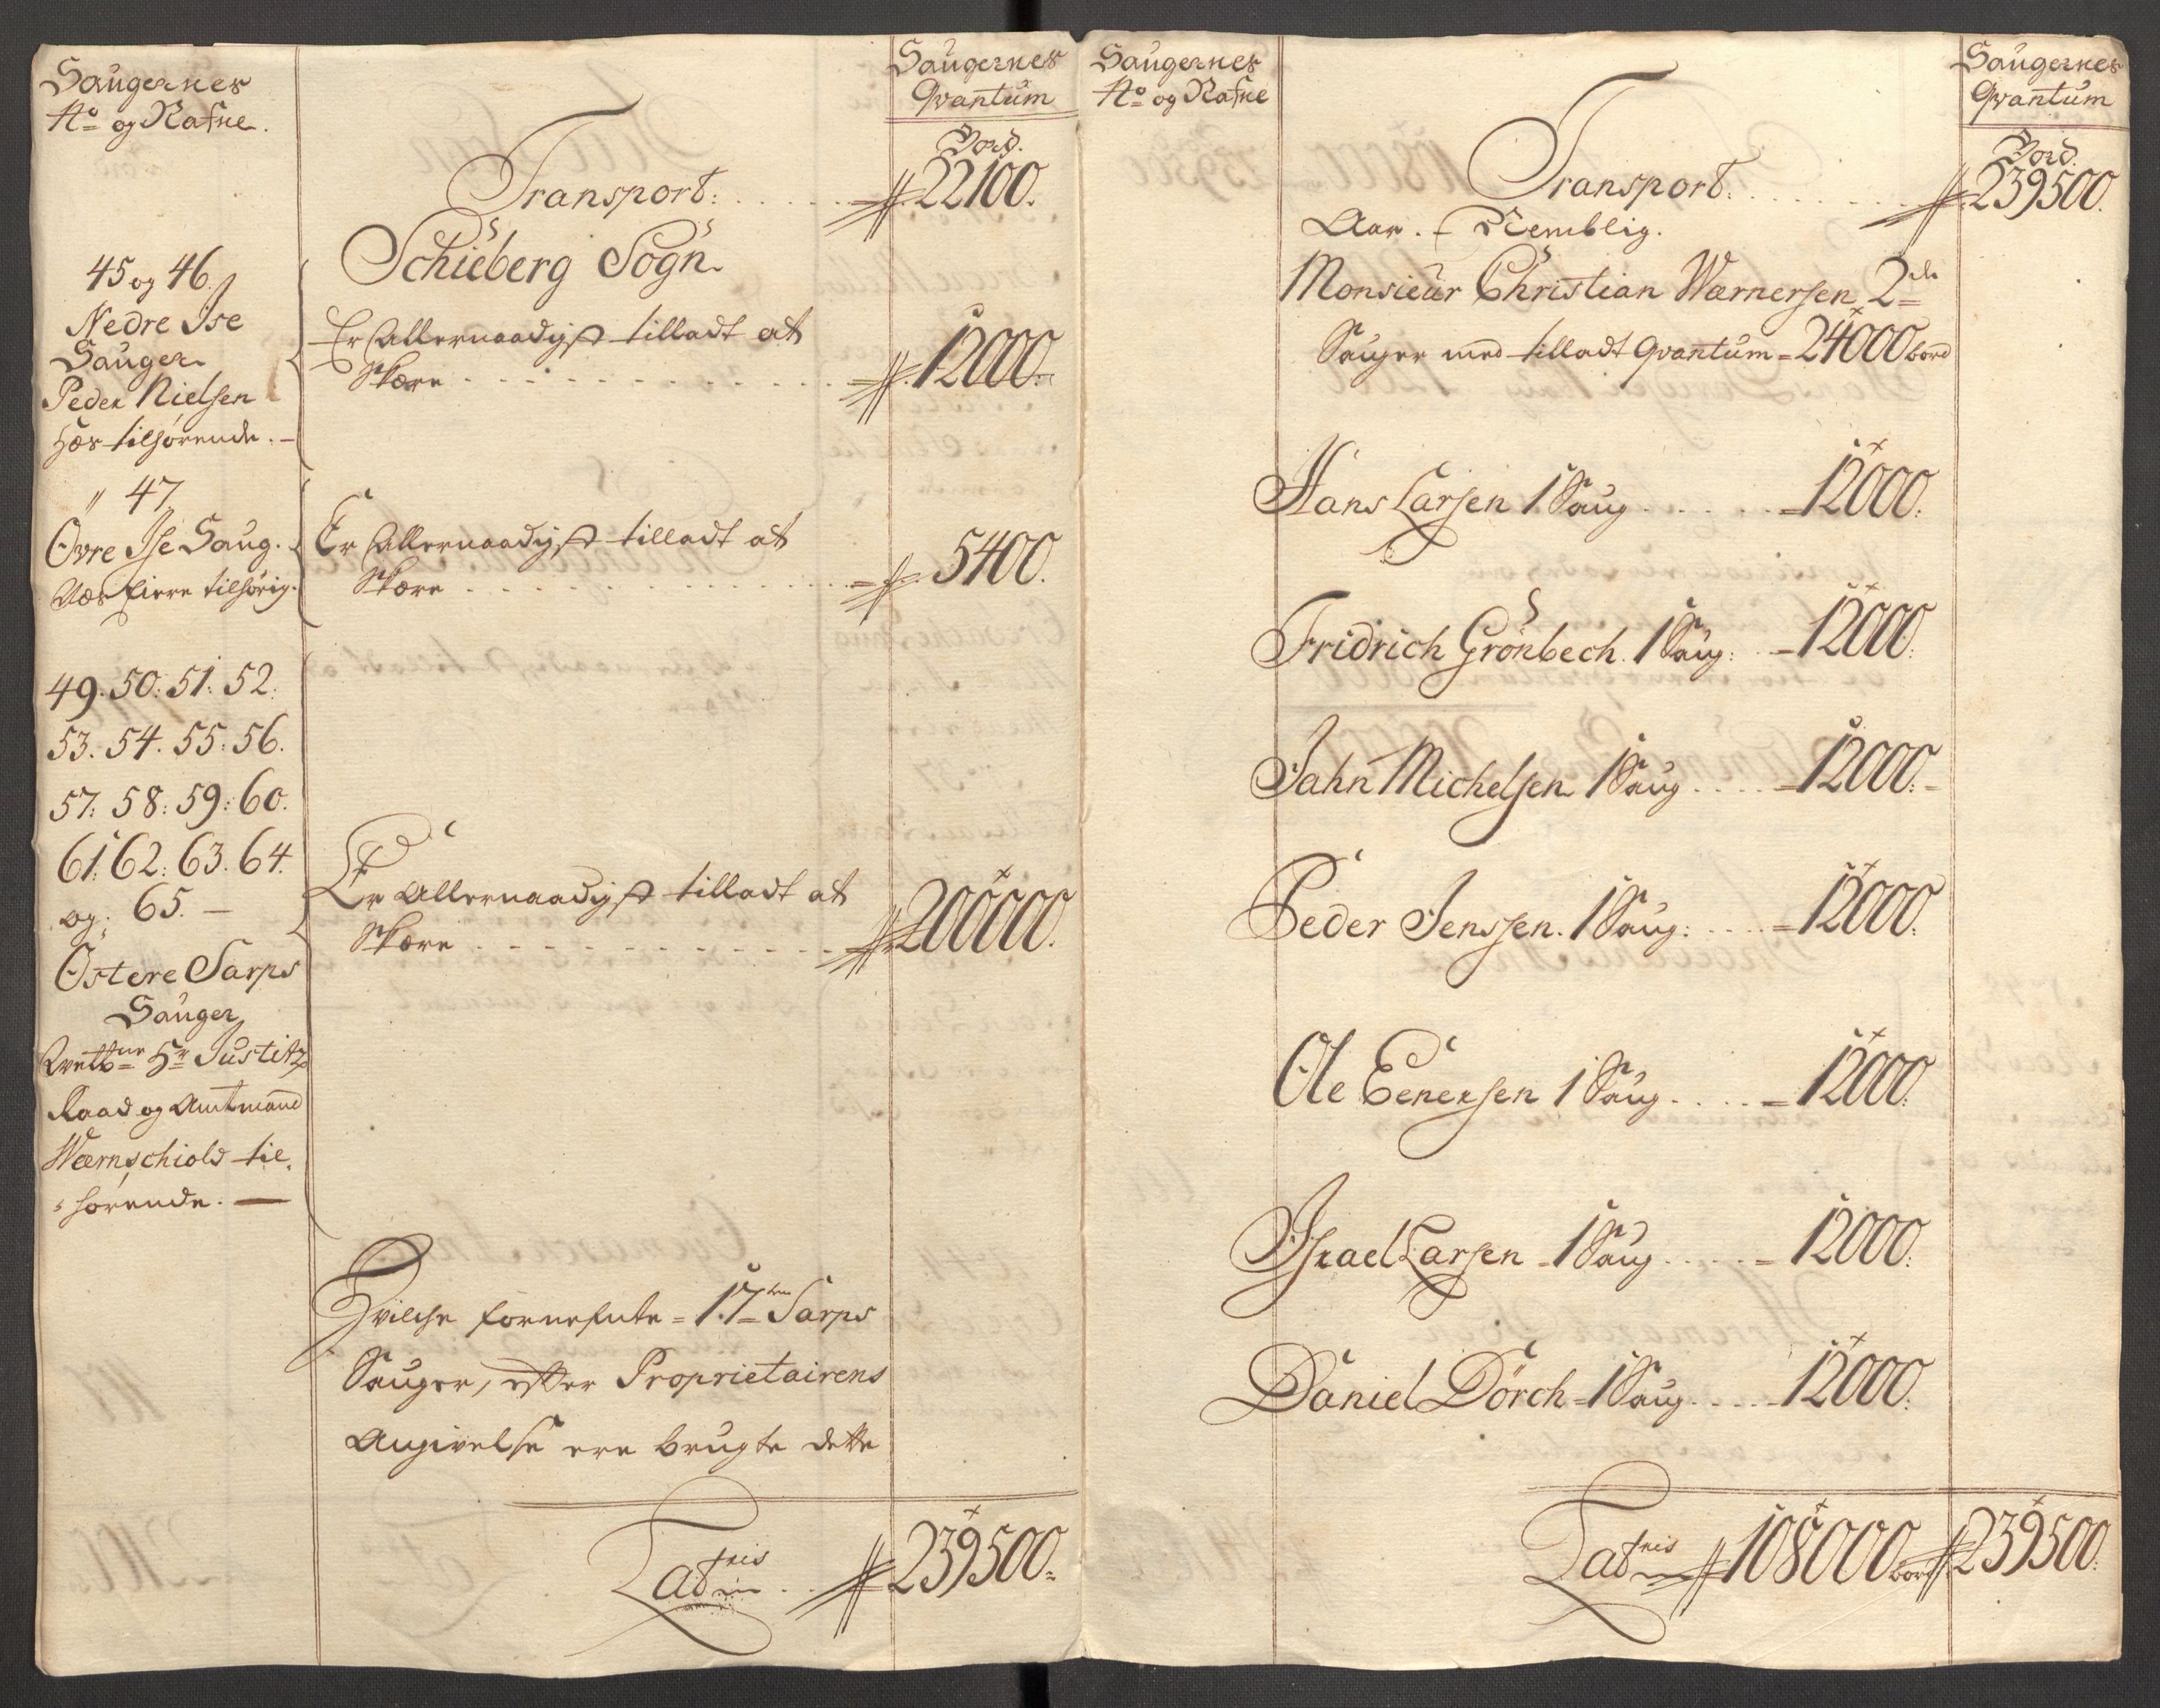 Saugernes
No og Nafne.
Saugernes
Qvantum
Bord.
Transport: 22100.
Schieberg Sogn.
45 og 46
Nedre Ise
Sauger
Peder Nielsen
Hos tilhørende. -
Er Allernaadigst tilladt at
Skære 12000.
" 47
Øvre Ise Saug.
tilhørig.
Er Allernaadigst tilladt at
Skære 5400.
49. 50: 51: 52:
53. 54. 55: 56.
57: 58: 59: 60.
61: 62: 63. 64.
og: 65. -
Østere Sarps
Sauger
Hr Justitz
Raad og Amtmand
Wærnschiold til-
hørende. -
Er Allernaadigst tilladt at
Skære 200000.
Hvilche fornefnte = 17ten Sarps
Sauger, efter Proprietairens
Angivelse ere brugte dette
Lateris 239500.
Saugernes
No og Nafne
Saugernes
Qvantum
Bord.
Transport. 239500.
Aar. - Nemblig.
Monsieur Christian Wærnersen 2de
Sauger med tilladt Qvantum = 24000 bord
Hans Larsen 1 Saug = 12000.
Fridrich Grönbech. 1 Saug: = 12000.
Jahn Michelsen 1 Saug = 12000. -
Peder Jenssen. 1 Saug: = 12000.
Ole Eenersen 1 Saug = 12000.
Israel Larsen = 1 Saug = 12000.
Daniel Dörch = 1 Saug 12000.
Lateris 108000 bord 239500.